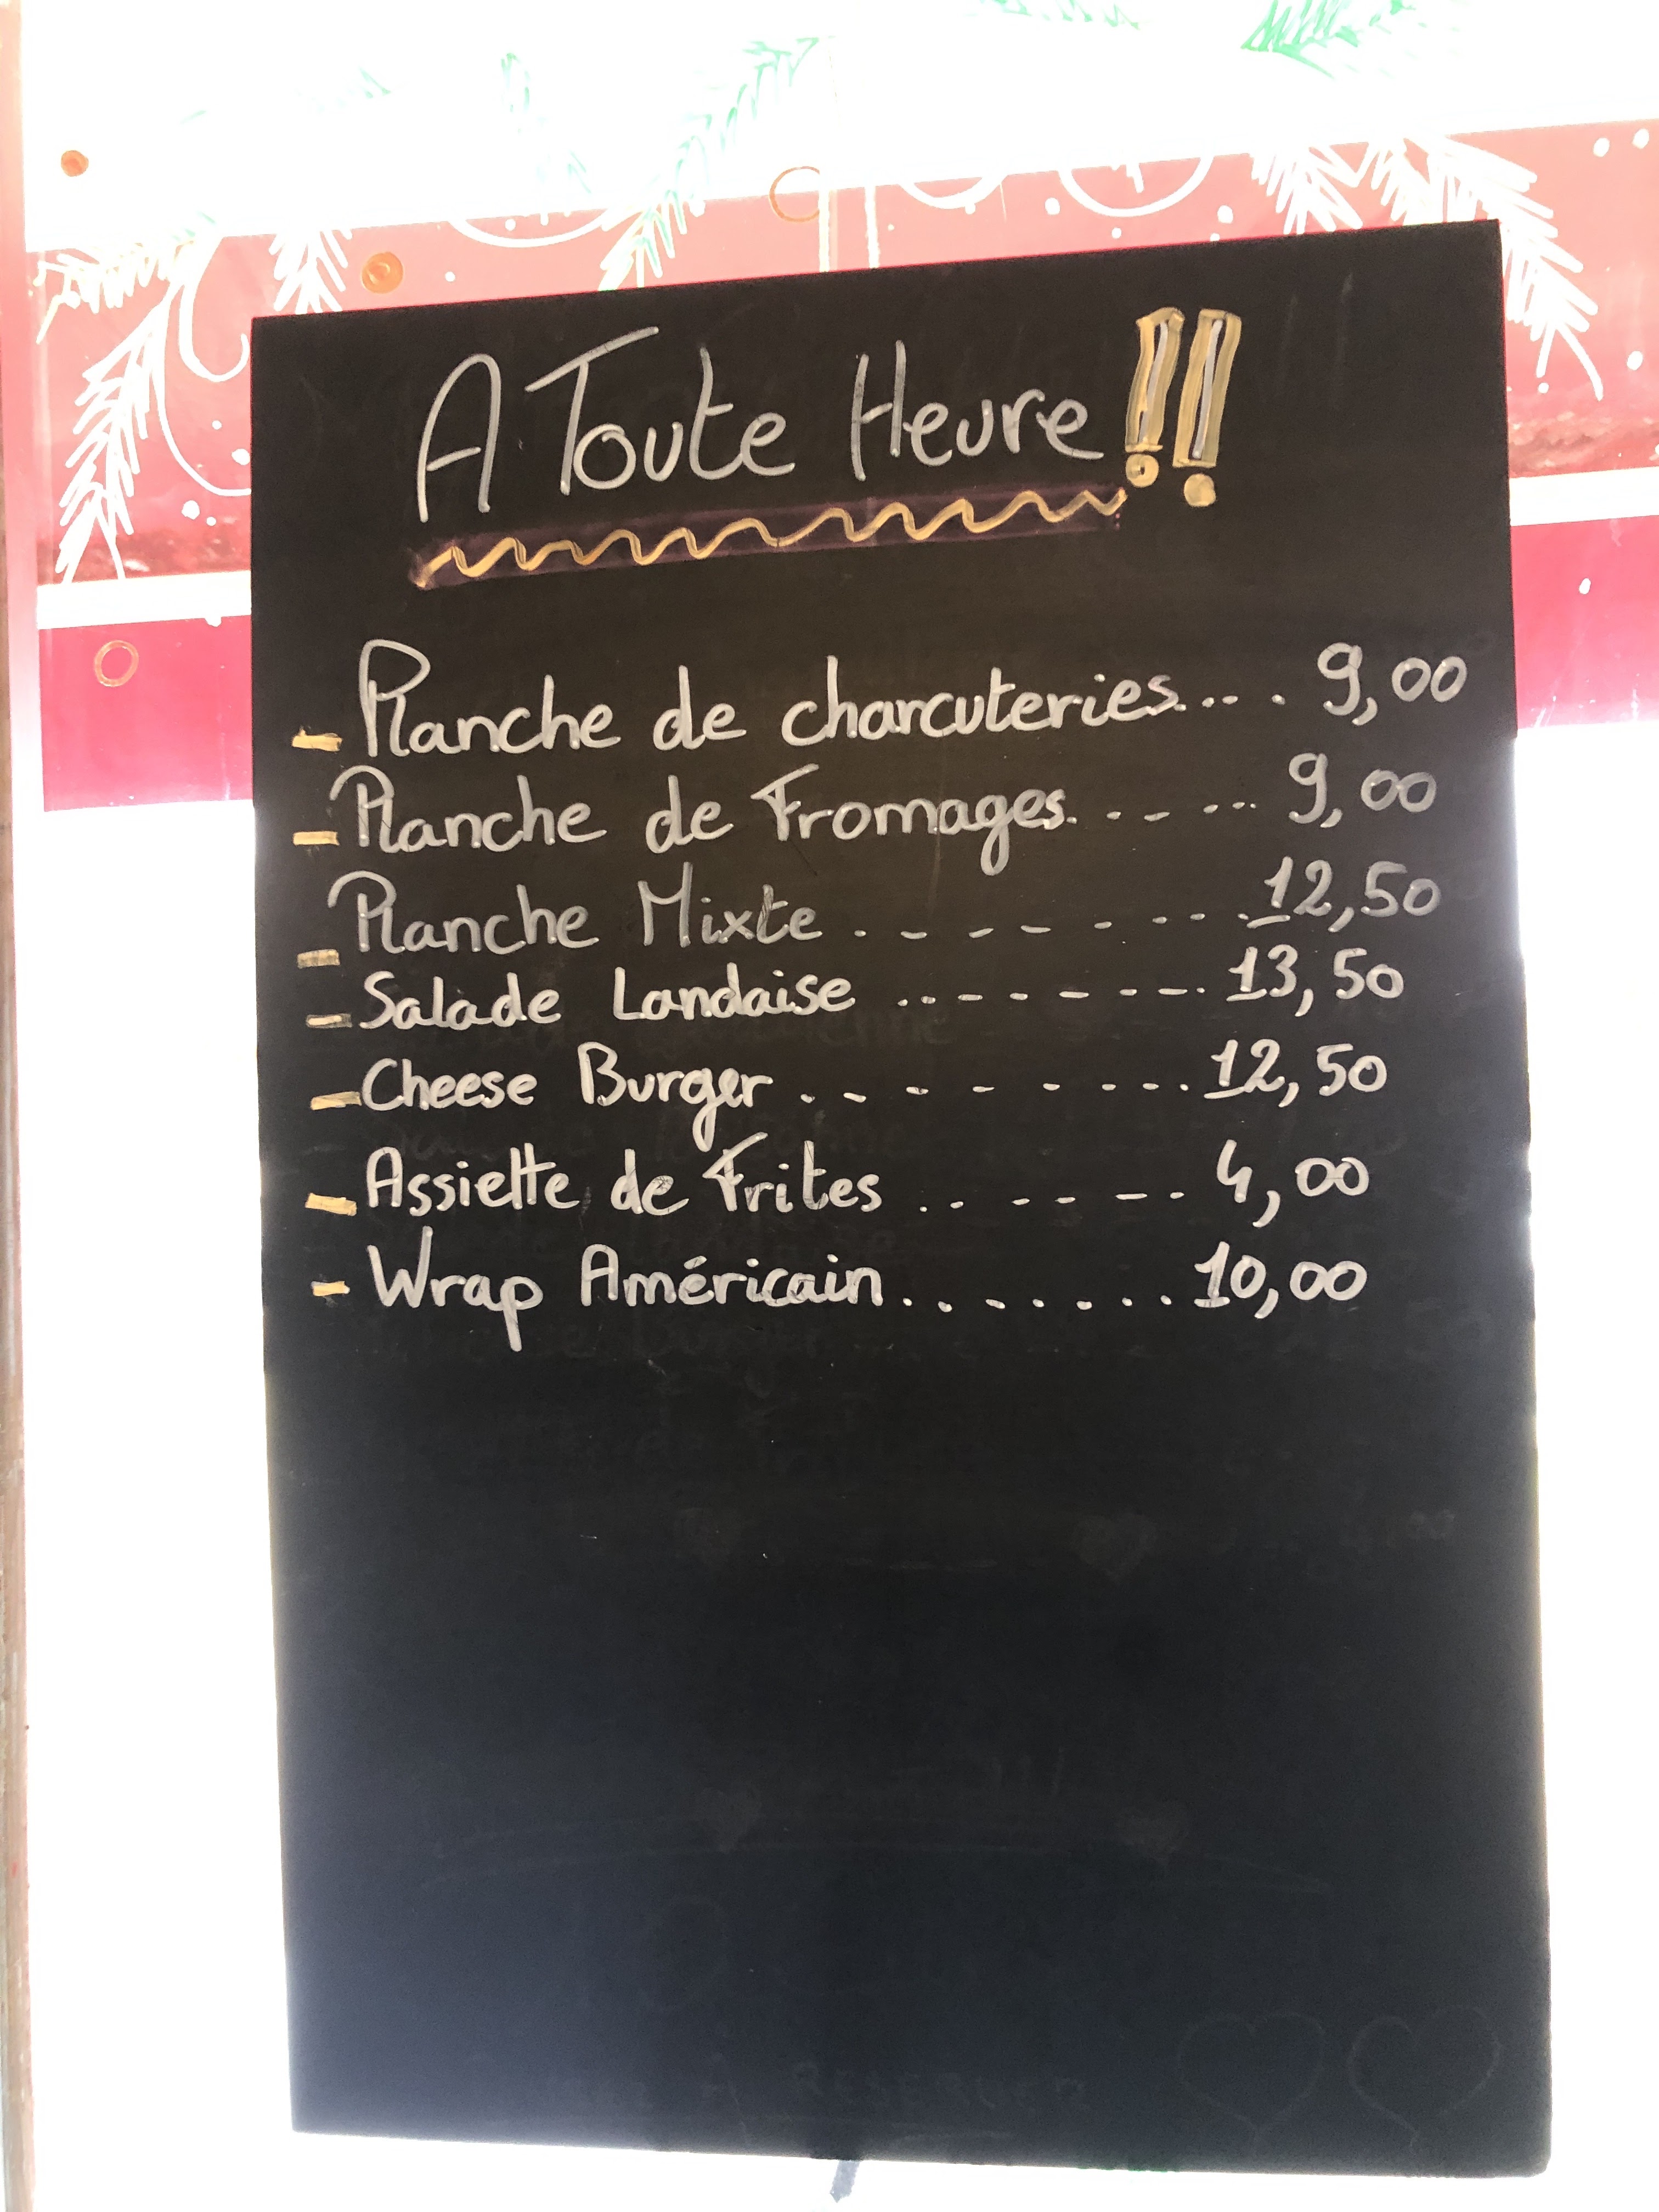 A Toute Heure !!
- Planche de charcuteries... . 9,00
- Planche de Fromages. . - - ... 9,00
- Planche Mixte . - - - - - - - . 12,50
- Salade Landaise .. - - - - - -. 13,50
- Cheese Burger . . - - - - - .. 12,50
- Assiette de Frites . . - - - - - 4,00
- Wrap Américain. . . . . . . . 10,00